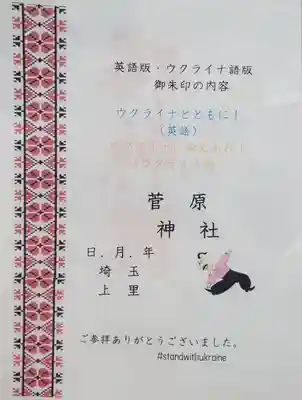 英語版・ウクライナ語版
御朱印の内容
ウクライナとともに！
（英語）
菅原
神社
日．月．年
埼玉
上里
ご参拝ありがとうございました。
#standwithukraine